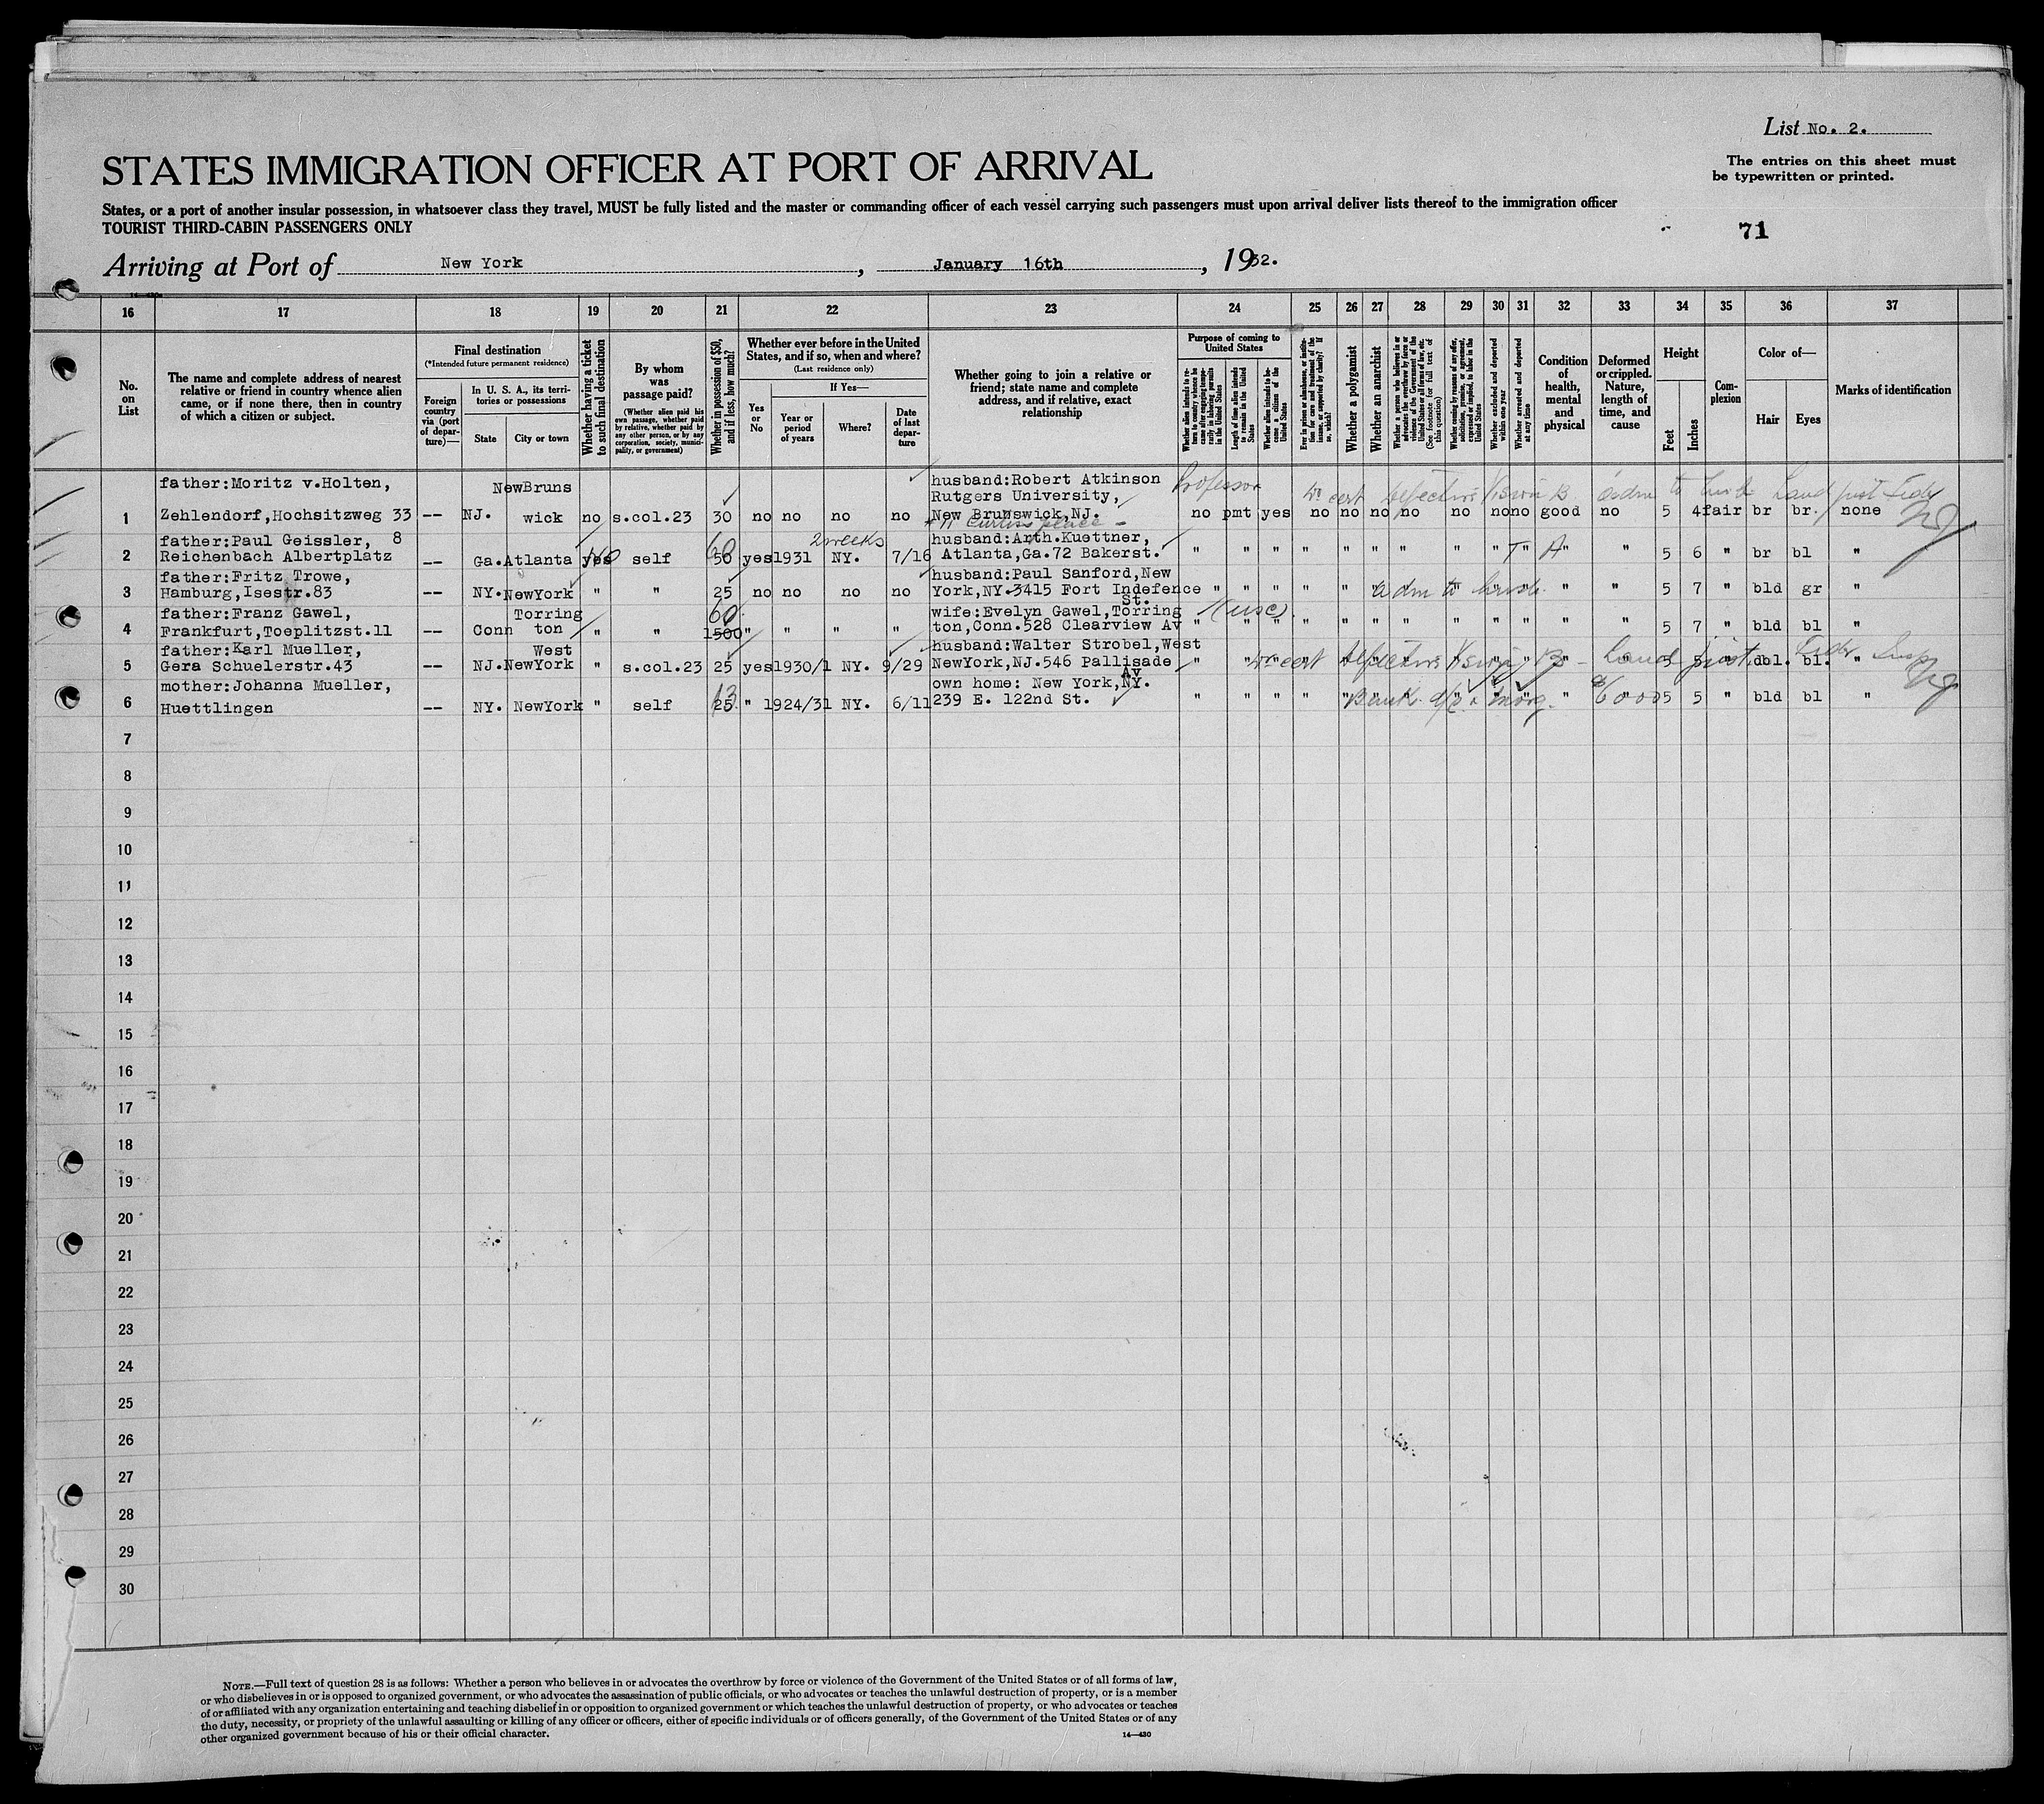 List No. 2.
STATES IMMIGRATION OFFICER AT PORT OF ARRIVAL
The entries on this sheet must
be typewritten or printed.
States, or a port of another insular possession, in whatsoever class they travel, MUST be fully listed and the master or commanding officer of each vessel carrying such passengers must upon arrival deliver lists thereof to the immigration officer
TOURIST THIRD-CABIN PASSENGERS ONLY
71
Arriving at Port of New York, January 16th, 1932.
16 17 18 19 20 21 22 23 24 25 26 27 28 29 30 31 32 33 34 35 36 37
No. on List
The name and complete address of nearest
relative or friend in country whence alien
came, or if none there, then in country
of which a citizen or subject.
Final destination
(*Intended future permanent residence)
Foreign country via (port of departure)—
In U. S. A., its territories or possessions
State
City or town
Whether having a ticket to such final destination
By whom was passage paid?
(Whether alien paid his own passage, whether paid by relative, whether paid by any other person, or by any corporation, society, municipality, or government)
Whether in possession of $50, and if less, how much?
Whether ever before in the United
States, and if so, when and where?
(Last residence only)
Yes or No
If Yes—
Year or period of years
Where?
Date of last departure
Whether going to join a relative or
friend; state name and complete
address, and if relative, exact
relationship
Purpose of coming to United States
Whether alien intends to return to country whence he came after engaging temporarily in laboring pursuits in the United States
Length of time alien intends to remain in the United States
Whether alien intends to become a citizen of the United States
Ever in prison or almshouse, or institution for care and treatment of the insane, or supported by charity? If so, which?
Whether a polygamist
Whether an anarchist
Whether a person who believes in or advocates the overthrow by force or violence of the Government of the United States or all forms of law, etc. (See footnote for full text of this question)
Whether coming by reasons of any offer, solicitation, promise, or agreement, expressed or implied, to labor in the United States
Whether excluded and deported within one year
Whether arrested and deported at any time
Condition of health, mental and physical
Deformed or crippled. Nature, length of time, and cause
Height
Feet
Inches
Complexion
Color of—
Hair
Eyes
Marks of identification
father:Moritz v.Holten, NewBruns husband:Robert Atkinson Professor
Rutgers University,
1 Zehlendorf,Hochsitzweg 33 -- NJ. wick no s.col.23 30 no no no no New Brunswick,NJ. no pmt yes no no no no no no no good no 5 4 fair br br. none
Curtis place
defective vision B
father:Paul Geissler, 8 2 weeks husband:Arth.Kuettner,
2 Reichenbach Albertplatz -- Ga. Atlanta yes No self 50 60 yes 1931 NY. 7/16 Atlanta,Ga.72 Bakerst. " " " " " " " " " " " " 5 6 " br bl "
father:Fritz Trowe, husband:Paul Sanford,New
3 Hamburg,Isestr.83 -- NY. NewYork " " 25 no no no no York,NY.3415 Fort Indefence St. " " " " " " " " " " " " 5 7 " bld gr "
adm to husb.
father:Franz Gawel, Torring 60 wife:Evelyn Gawel,Torring (USC)
4 Frankfurt,Toeplitzst.11 -- Conn ton " " 1500 " " " " ton,Conn.528 Clearview Av " " " " " " " " " " " " 5 7 " bld bl "
father:Karl Mueller, West husband:Walter Strobel,West
5 Gera Schuelerstr.43 -- NJ. NewYork " s.col.23 25 yes 1930/1 NY. 9/29 NewYork,NJ.546 Pallisade Av " " 5 5 " dbl. bl. "
defective vision B
mother:Johanna Mueller, own home: New York,NY.
6 Huettlingen -- NY. NewYork " self 25 13 " 1924/31 NY. 6/11 239 E. 122nd St. " " " " " " " " " " " " 5 5 " bld bl "
Bank
$6000
7
8
9
10
11
12
13
14
15
16
17
18
19
20
21
22
23
24
25
26
27
28
29
30
NOTE.—Full text of question 28 is as follows: Whether a person who believes in or advocates the overthrow by force or violence of the Government of the United States or of all forms of law,
or who disbelieves in or is opposed to organized government, or who advocates the assassination of public officials, or who advocates or teaches the unlawful destruction of property, or is a member
of or affiliated with any organization entertaining and teaching disbelief in or opposition to organized government or which teaches the unlawful destruction of property, or who advocates or teaches
the duty, necessity, or propriety of the unlawful assaulting or killing of any officer or officers, either of specific individuals or of officers generally, of the Government of the United States or of any
other organized government because of his or their official character.
14—430